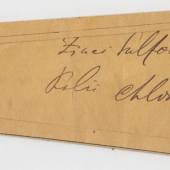 Zinci sulfo
Kalii chlor